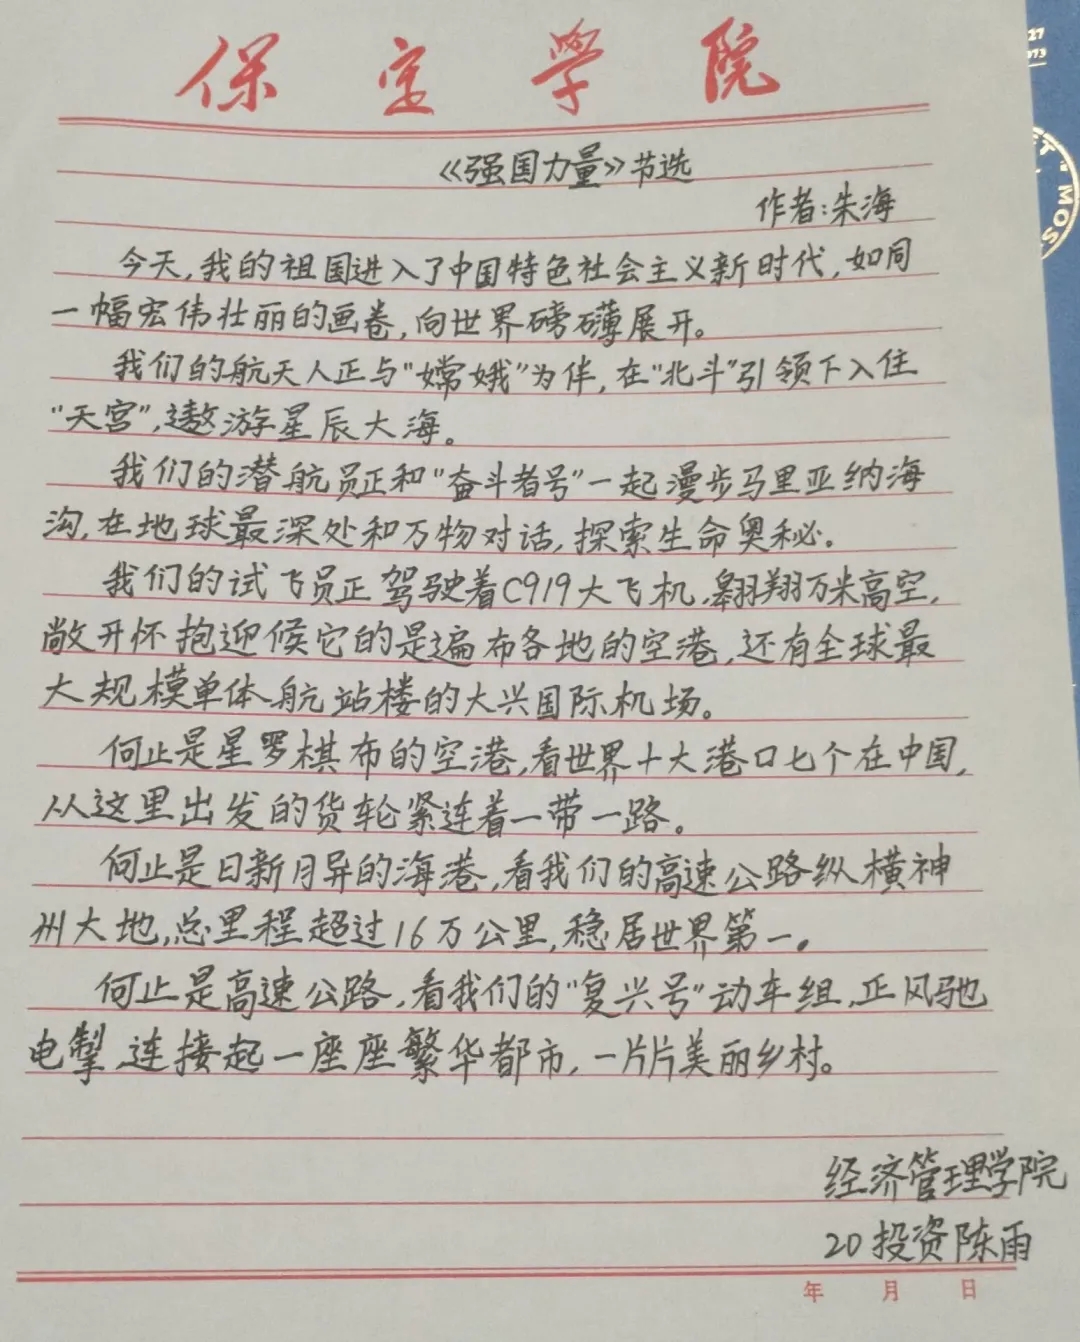 保定学院
《强国力量》节选
作者:朱海
今天,我的祖国进入了中国特色社会主义新时代,如同
一幅宏伟壮丽的画卷,向世界磅礴展开。
我们的航天人正与"嫦娥"为伴,在"北斗"引领下入住
"天宫",遨游星辰大海。
我们的潜航员正和"奋斗者号"一起漫步马里亚纳海
沟,在地球最深处和万物对话,探索生命奥秘。
我们的试飞员正驾驶着C919大飞机,翱翔万米高空,
敞开怀抱迎候它的是遍布各地的空港,还有全球最
大规模单体航站楼的大兴国际机场。
何止是星罗棋布的空港,看世界十大港口七个在中国,
从这里出发的货轮紧连着一带一路。
何止是日新月异的海港,看我们的高速公路纵横神
州大地,总里程超过16万公里,稳居世界第一。
何止是高速公路,看我们的"复兴号"动车组,正风驰
电掣,连接起一座座繁华都市,一片片美丽乡村。
经济管理学院
20投资陈雨
年 月 日
27
073
MOS